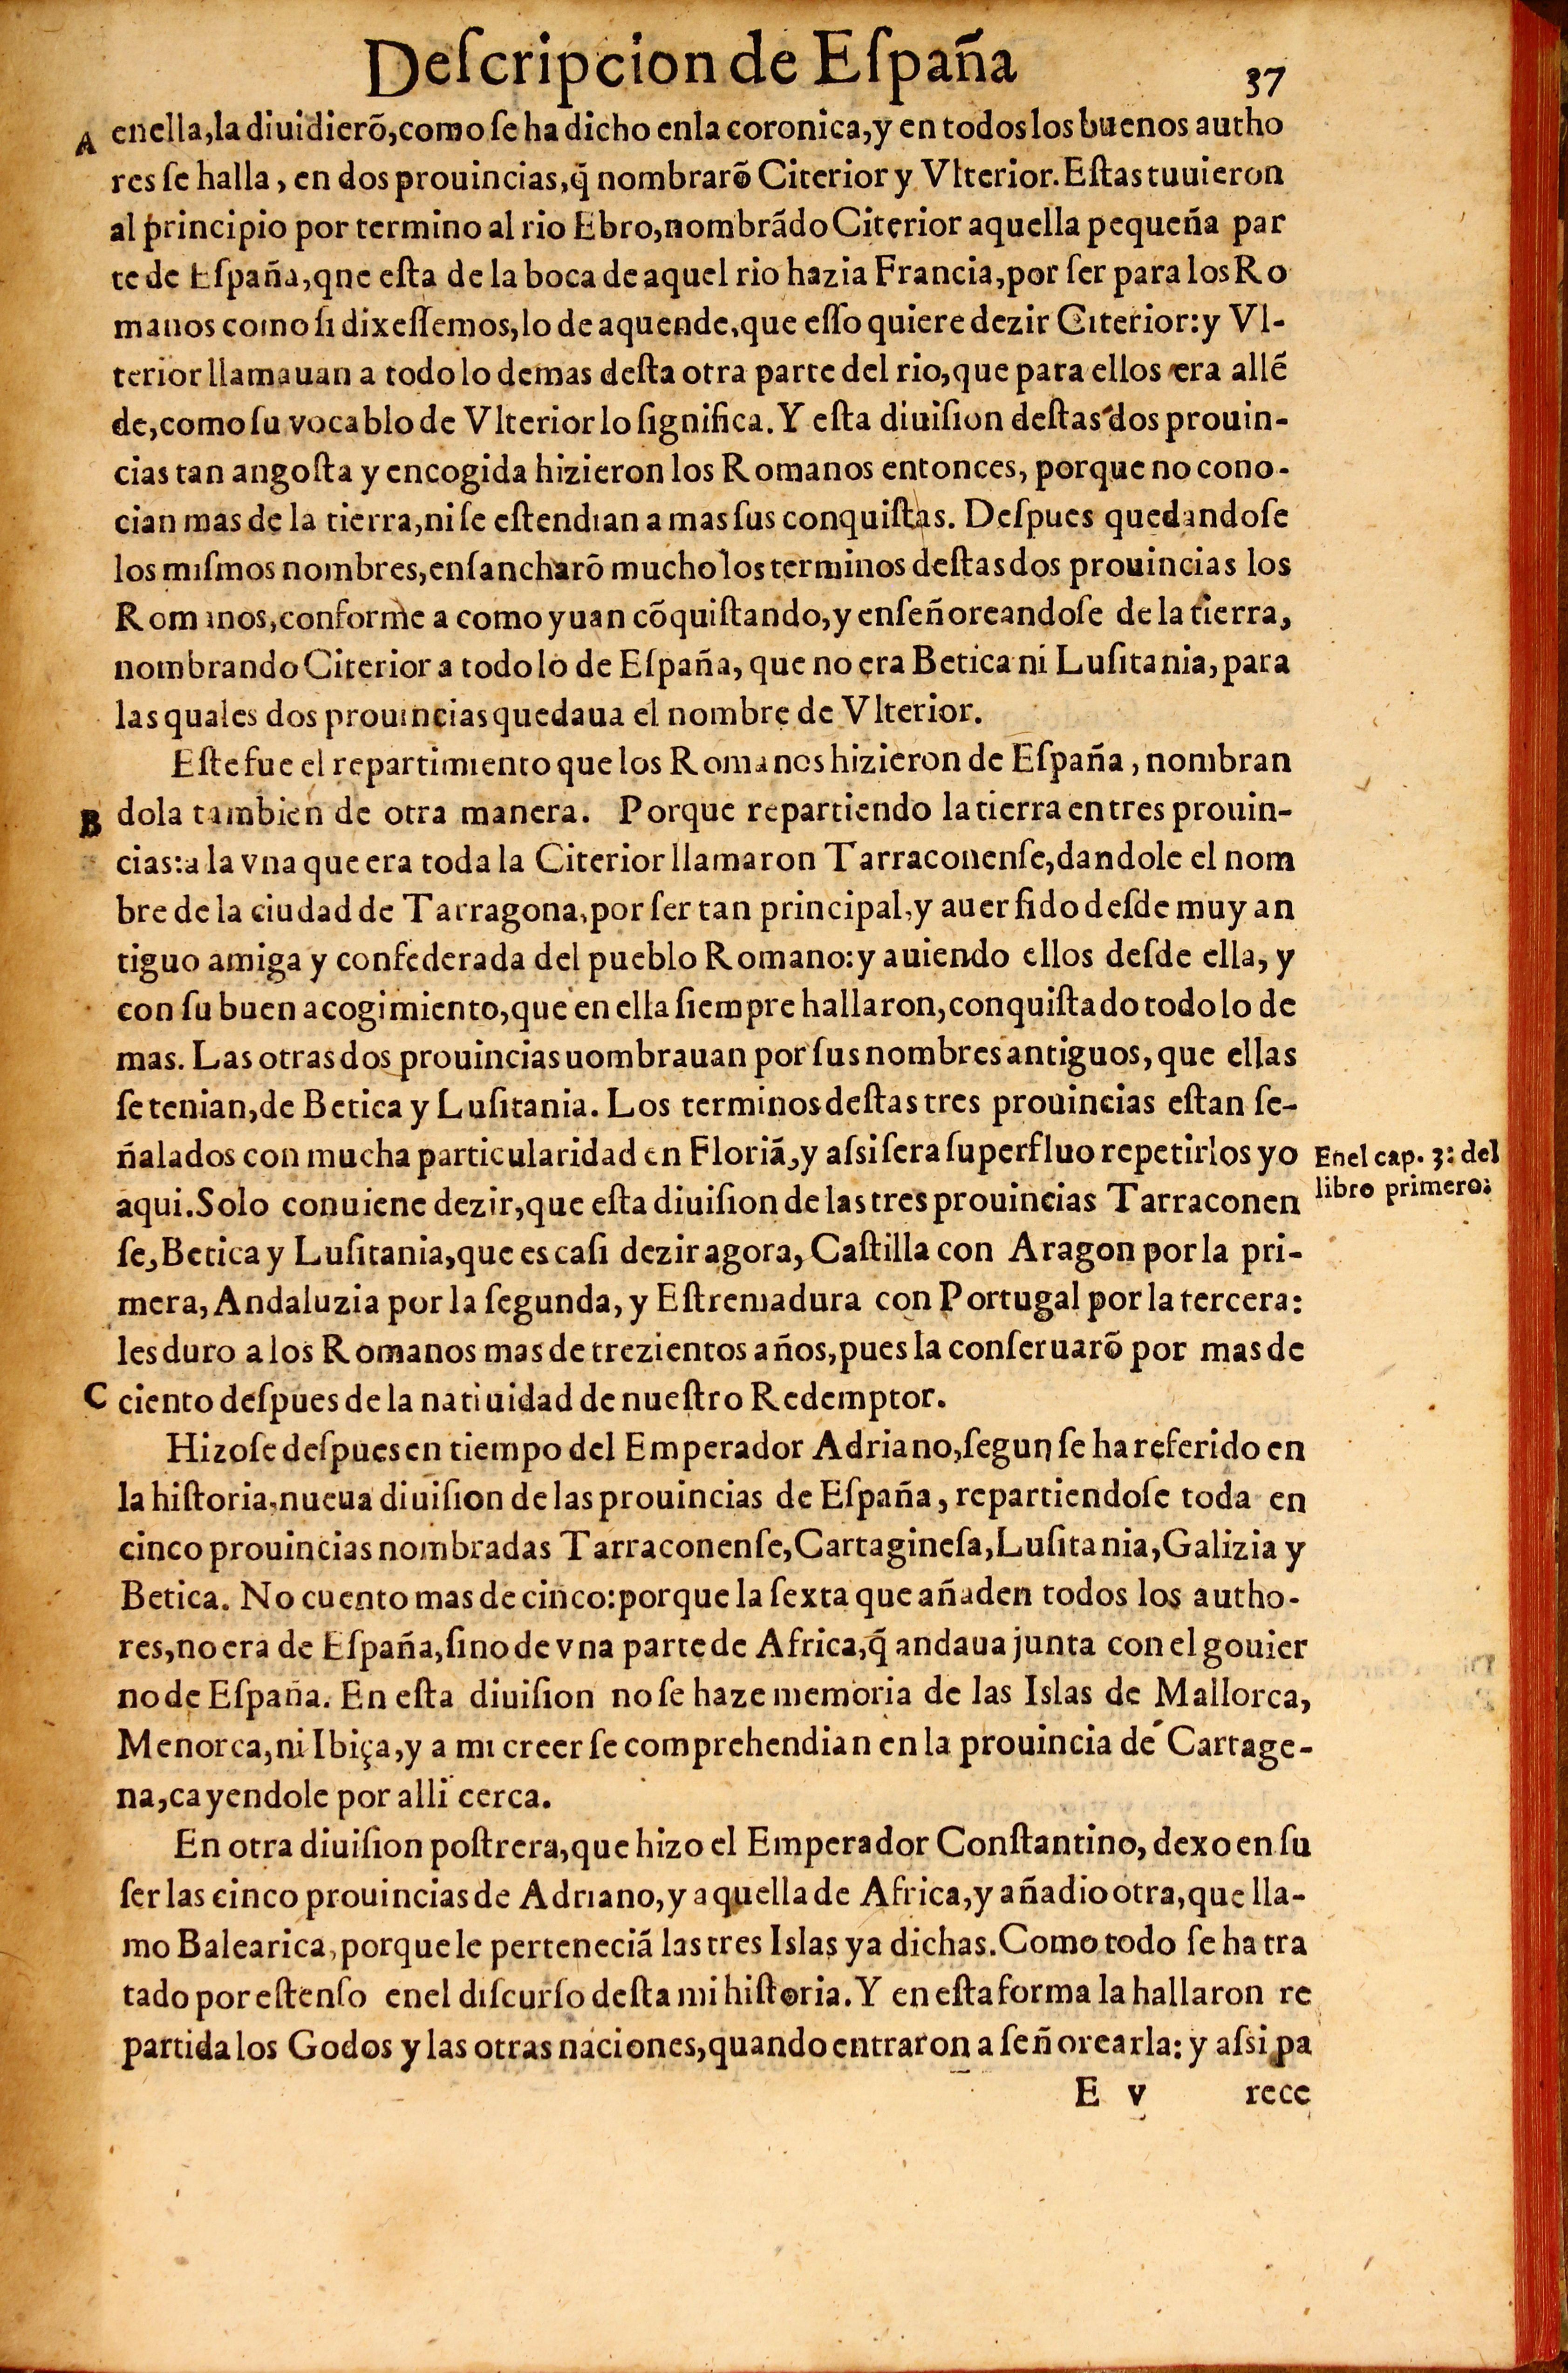 Deſcripcion de Eſpaña
37
A
enella, la diuidierõ, como ſe ha dicho enla coronica, y en todos los buenos autho
res ſe halla, en dos prouincias, q̃ nombrarõ Citerior y Vlterior. Eſtas tuuieron
al principio por termino al rio Ebro, nombrãdo Citerior aquella pequeña par
te de Eſpaña, que eſta de la boca de aquel rio hazia Francia, por ſer para los Ro
manos como ſi dixeſſemos, lo de aquende, que eſſo quiere dezir Citerior: y Vl-
terior llamauan a todo lo demas deſta otra parte del rio, que para ellos era allẽ
de, como ſu vocablo de Vlterior lo ſignifica. Y eſta diuiſion deſtas dos prouin-
cias tan angoſta y encogida hizieron los Romanos entonces, porque no cono-
cian mas de la tierra, ni ſe eſtendian a mas ſus conquiſtas. Deſpues quedandoſe
los miſmos nombres, enſancharõ mucho los terminos deſtas dos prouincias los
Romanos, conforme a como yuan cõquiſtando, y enſeñoreandoſe de la tierra,
nombrando Citerior a todo lo de Eſpaña, que no era Betica ni Luſitania, para
las quales dos prouincias quedaua el nombre de Vlterior.
Eſte fue el repartimiento que los Romanos hizieron de Eſpaña, nombran
B
dola tambien de otra manera. Porque repartiendo la tierra en tres prouin-
cias: a la vna que era toda la Citerior llamaron Tarraconenſe, dandole el nom
bre de la ciudad de Tarragona, por ſer tan principal, y auer ſido deſde muy an
tiguo amiga y confederada del pueblo Romano: y auiendo ellos deſde ella, y
con ſu buen acogimiento, que en ella ſiempre hallaron, conquiſtado todo lo de
mas. Las otras dos prouincias uombrauan por ſus nombres antiguos, que ellas
ſe tenian, de Betica y Luſitania. Los terminos deſtas tres prouincias eſtan ſe-
ñalados con mucha particularidad en Floriã, y aſsi ſera ſuperfluo repetirlos yo
Enel cap. 3. del
libro primero.
aqui. Solo conuiene dezir, que eſta diuiſion de las tres prouincias Tarraconen
ſe, Betica y Luſitania, que es caſi dezir agora, Caſtilla con Aragon por la pri-
mera, Andaluzia por la ſegunda, y Eſtremadura con Portugal por la tercera:
les duro a los Romanos mas de trezientos años, pues la conſeruarõ por mas de
C
ciento deſpues de la natiuidad de nueſtro Redemptor.
Hizoſe deſpues en tiempo del Emperador Adriano, ſegun ſe ha referido en
la hiſtoria, nueua diuiſion de las prouincias de Eſpaña, repartiendoſe toda en
cinco prouincias nombradas Tarraconenſe, Cartagineſa, Luſitania, Galizia y
Betica. No cuento mas de cinco: porque la ſexta que añaden todos los autho-
res, no era de Eſpaña, ſino de vna parte de Africa, q̃ andaua junta con el gouier
no de Eſpaña. En eſta diuiſion no ſe haze memoria de las Islas de Mallorca,
Menorca, ni Ibiça, y a mi creer ſe comprehendian en la prouincia de Cartage-
na, cayendole por alli cerca.
En otra diuiſion poſtrera, que hizo el Emperador Conſtantino, dexo en ſu
ſer las cinco prouincias de Adriano, y aquella de Africa, y añadio otra, que lla-
mo Balearica, porque le perteneciã las tres Islas ya dichas. Como todo ſe ha tra
tado por eſtenſo enel diſcurſo deſta mi hiſtoria. Y en eſta forma la hallaron re
partida los Godos y las otras naciones, quando entraron a ſeñorearla: y aſsi pa
E v
rece